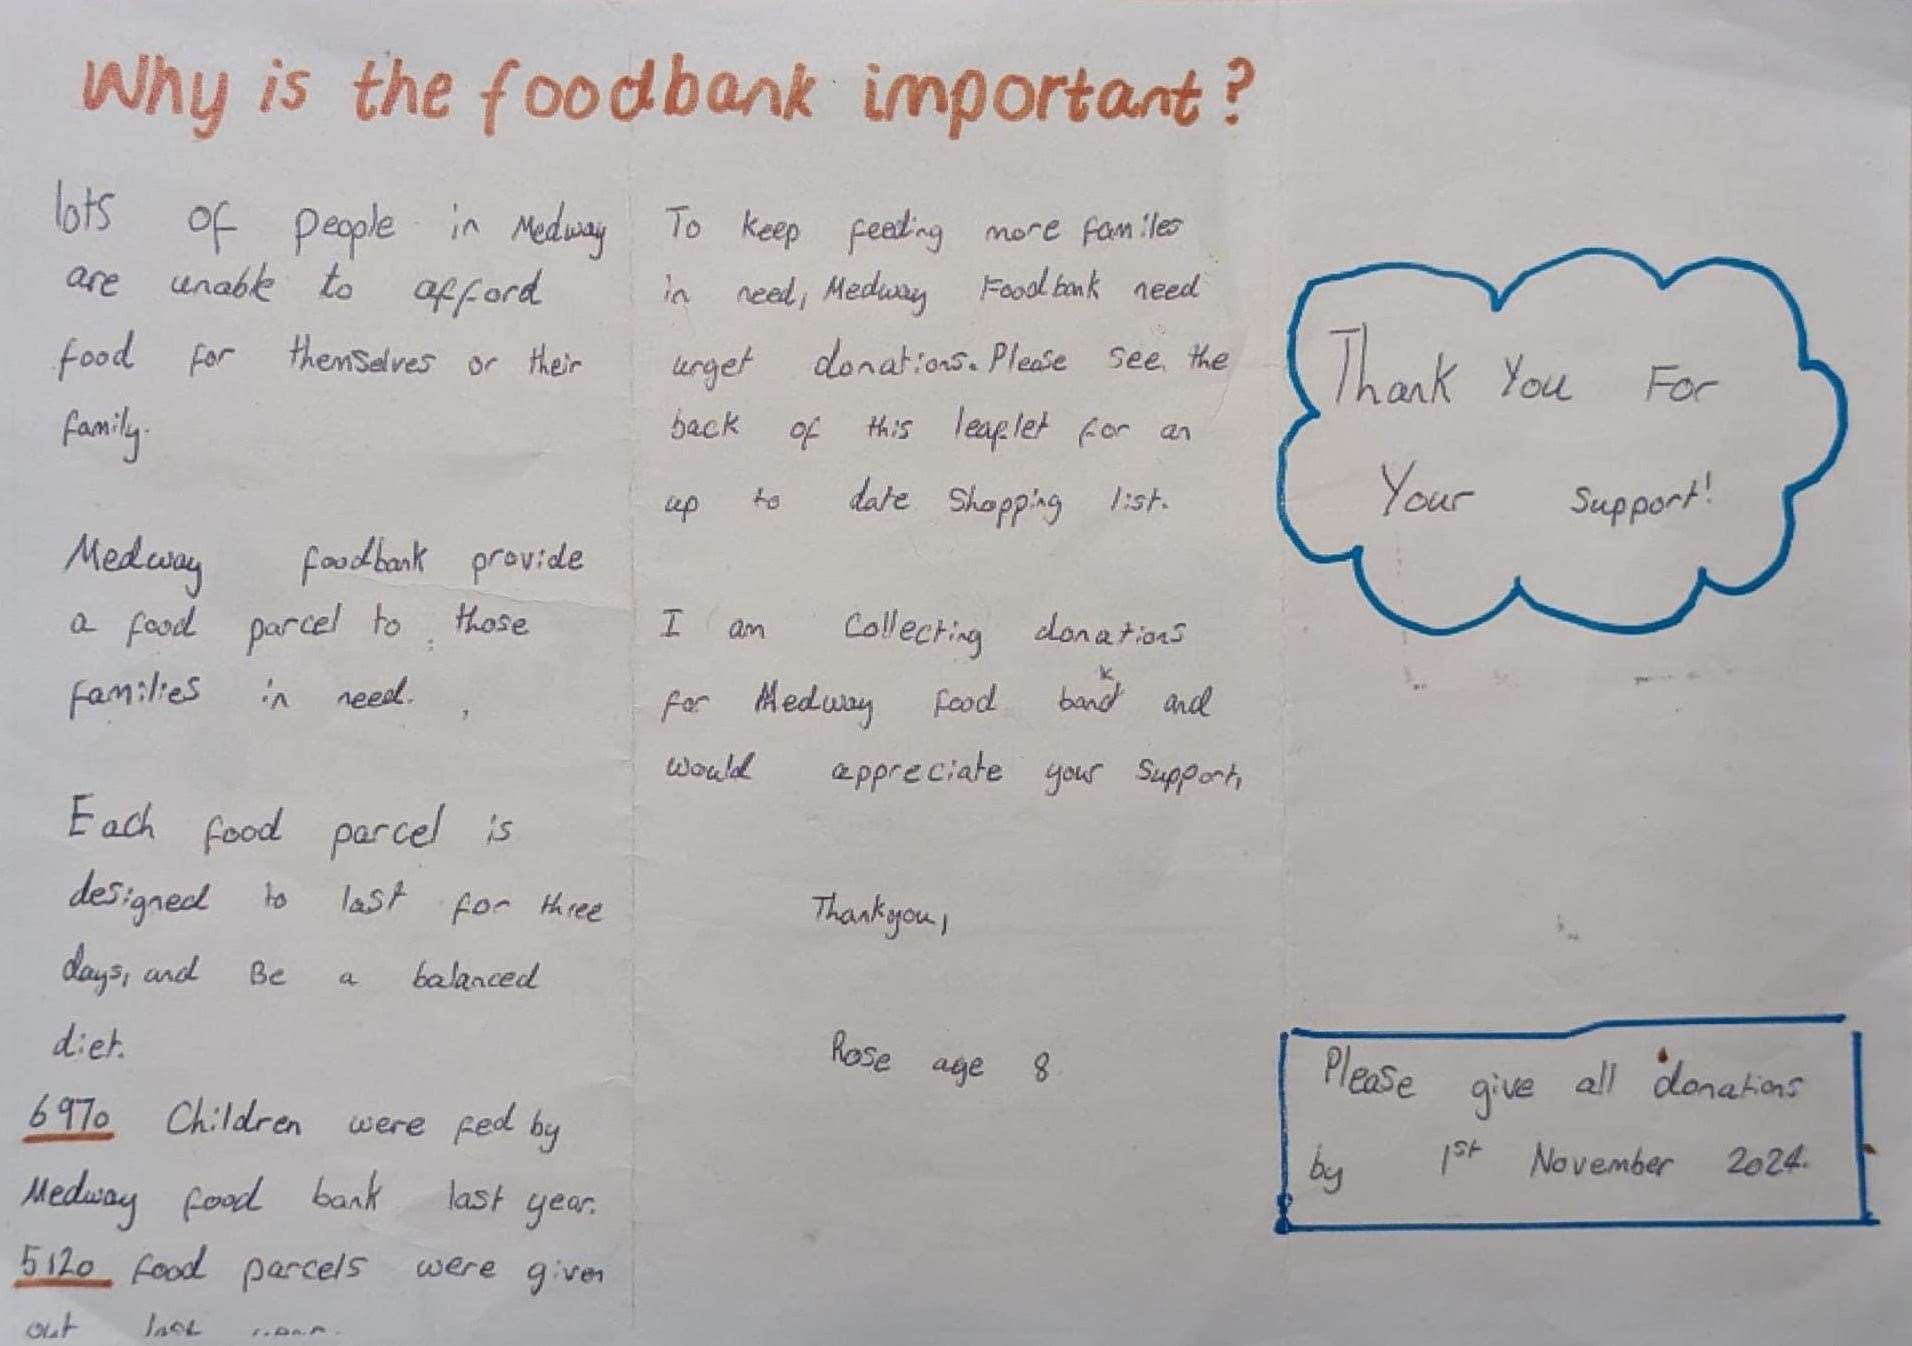 Why is the foodbank important?
lots of people in Medway
are unable to afford
food for themselves or their
family.
Medway foodbank provide
a food parcel to those
families in need.
Each food parcel is
designed to last for three
days, and Be a balanced
diet.
6970 Children were fed by
Medway food bank last year.
5120 food parcels were given
out last year.
To keep feeding more familes
in need, Medway Foodbank need
urget donations. Please see the
back of this leaflet for an
up to date Shopping list.
I am Collecting donations
for Medway food bank and
would appreciate your support,
Thankyou,
Rose age 8
Thank You For
Your support!
Please give all donations
by 1st November 2024.